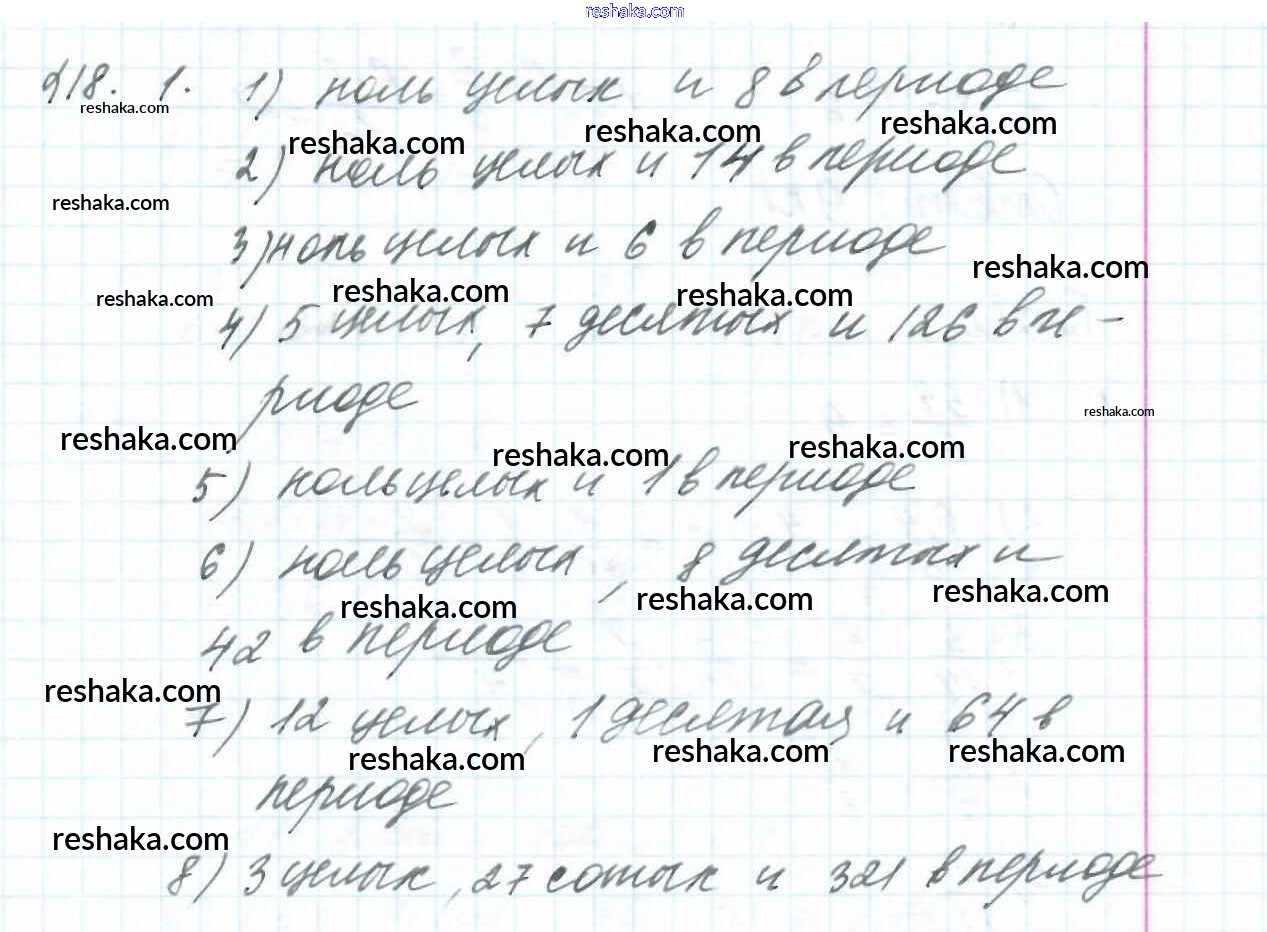 reshaka.com
§18. 1. 1) ноль целых и 8 в периоде
reshaka.com
reshaka.com reshaka.com reshaka.com
2) ноль целых и 14 в периоде
reshaka.com
3) ноль целых и 6 в периоде
reshaka.com
reshaka.com reshaka.com reshaka.com
4) 5 целых, 7 десятых и 126 в пе-
риоде
reshaka.com
reshaka.com reshaka.com reshaka.com
5) ноль целых и 1 в периоде
6) ноль целых, 8 десятых и
reshaka.com reshaka.com reshaka.com
42 в периоде
reshaka.com
7) 12 целых, 1 десятая и 64 в
reshaka.com reshaka.com reshaka.com
периоде
reshaka.com
8) 3 целых, 27 сотых и 321 в периоде